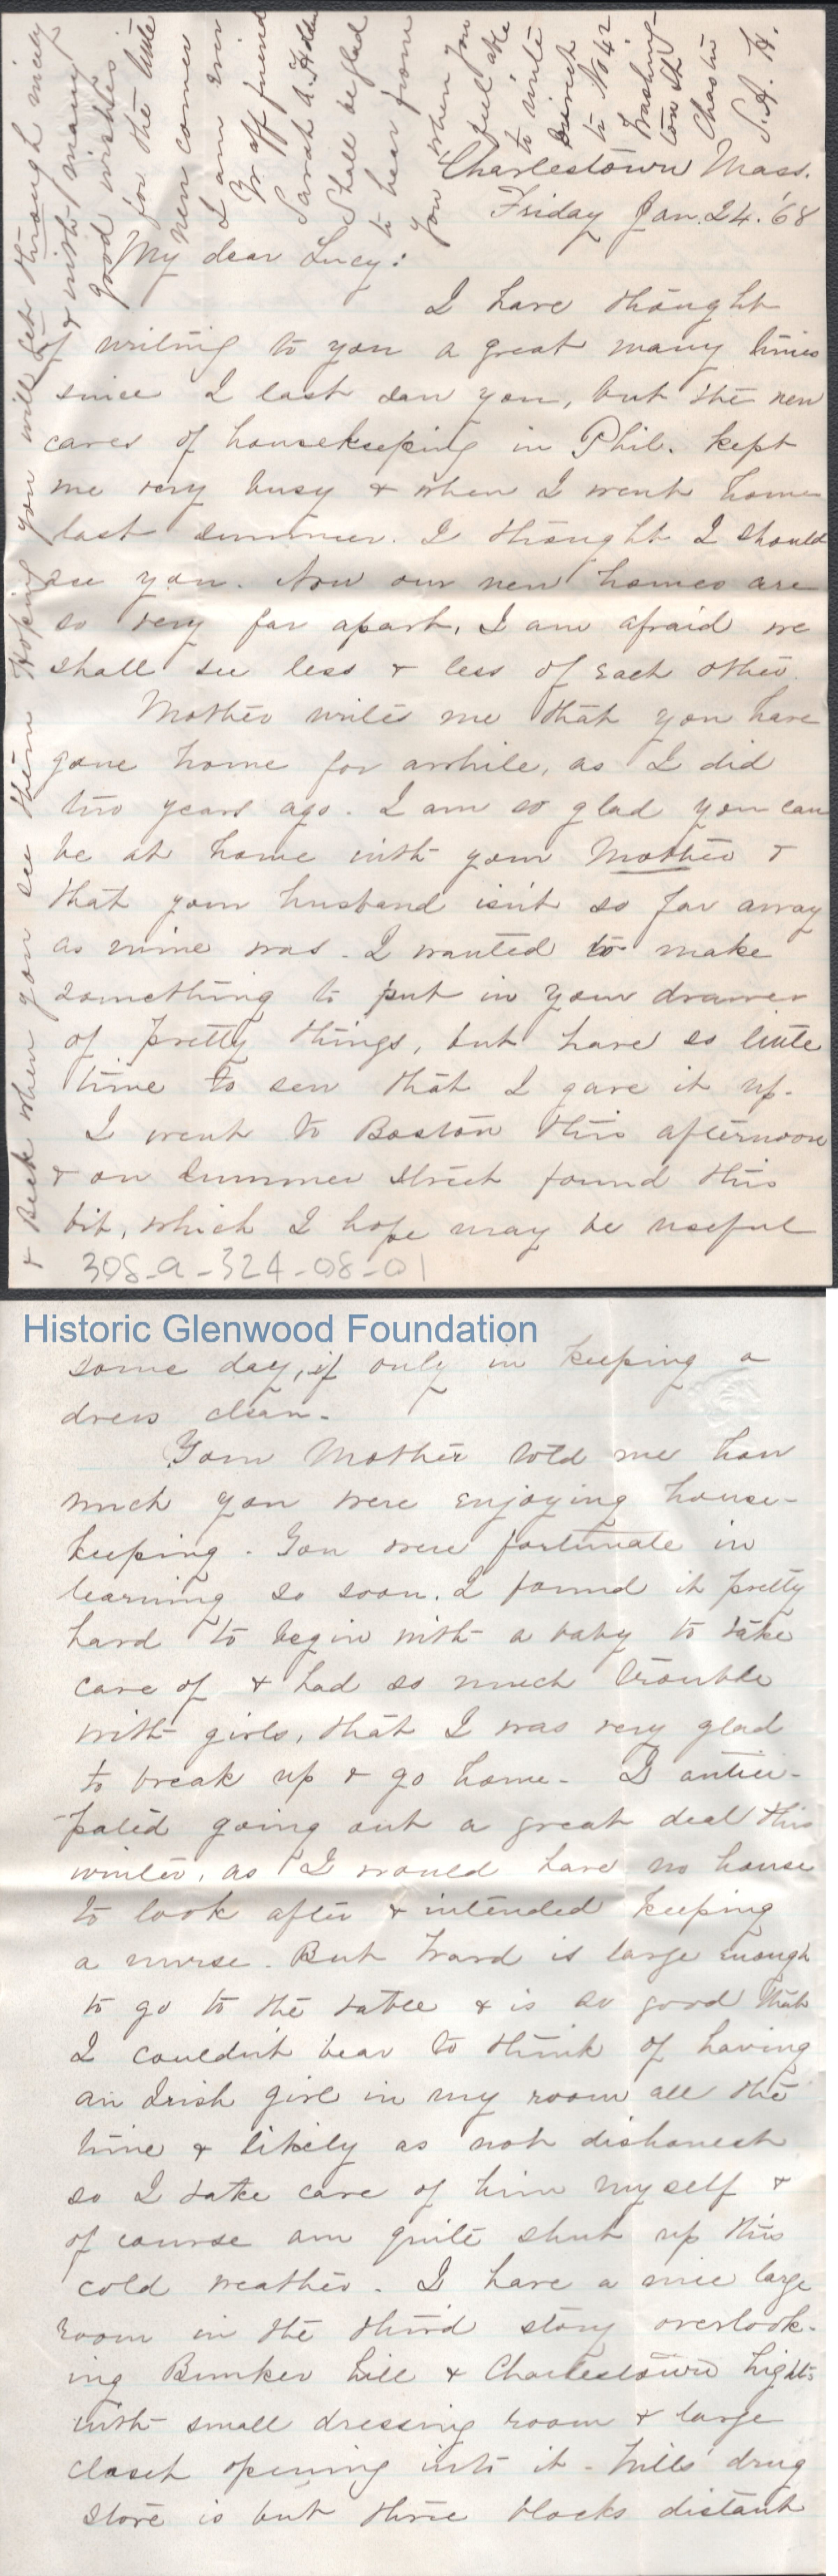 Charlestown Mass.
Friday Jan. 24. '68
My dear Lucy:
I have thought
of writing to you a great many times
since I last saw you, but the new
cares of housekeeping in Phil. kept
me very busy & when I went home
last summer. I thought I should
see you. Now our new homes are
so very far apart, I am afraid we
shall see less & less of each other.
Mother writes me that you have
gone home for awhile, as I did
two years ago. I am so glad you can
be at home with your Mother &
that your husband isn't so far away
as mine was. I wanted to make
something to put in your drawer
of pretty things, but have so little
time to sew that I gave it up.
I went to Boston this afternoon
& on Summer Street found this
bit, which I hope may be useful
308-a-324-08-01
& Beck when you see them Hoping you will get through nicely
& with many
good wishes
for the little
new comer
I am ever
Yr aff friend
Sarah A. Holden
Shall be glad
to hear from
you when you
feel able
to write
Direct
to No 42
Washing-
ton St
Chas'tn
S. A. H.
Historic Glenwood Foundation
some day, if only in keeping a
dress clean.
Your Mother told me how
much you were enjoying house-
keeping. You were fortunate in
learning so soon. I found it pretty
hard to begin with a baby to take
care of & had so much trouble
with girls, that I was very glad
to break up & go home. I antici-
pated going out a great deal this
winter, as I would have no house
to look after & intended keeping
a nurse. But Ward is large enough
to go to the table & is so good that
I couldn't bear to think of having
an Irish girl in my room all the
time & likely as not dishonest
so I take care of him myself &
of course am quite shut up this
cold weather. I have a nice large
room in the third story overlook-
ing Bunker hill & Charlestown hights
with small dressing room & large
closet opening into it. Wills' drug
store is but three blocks distant